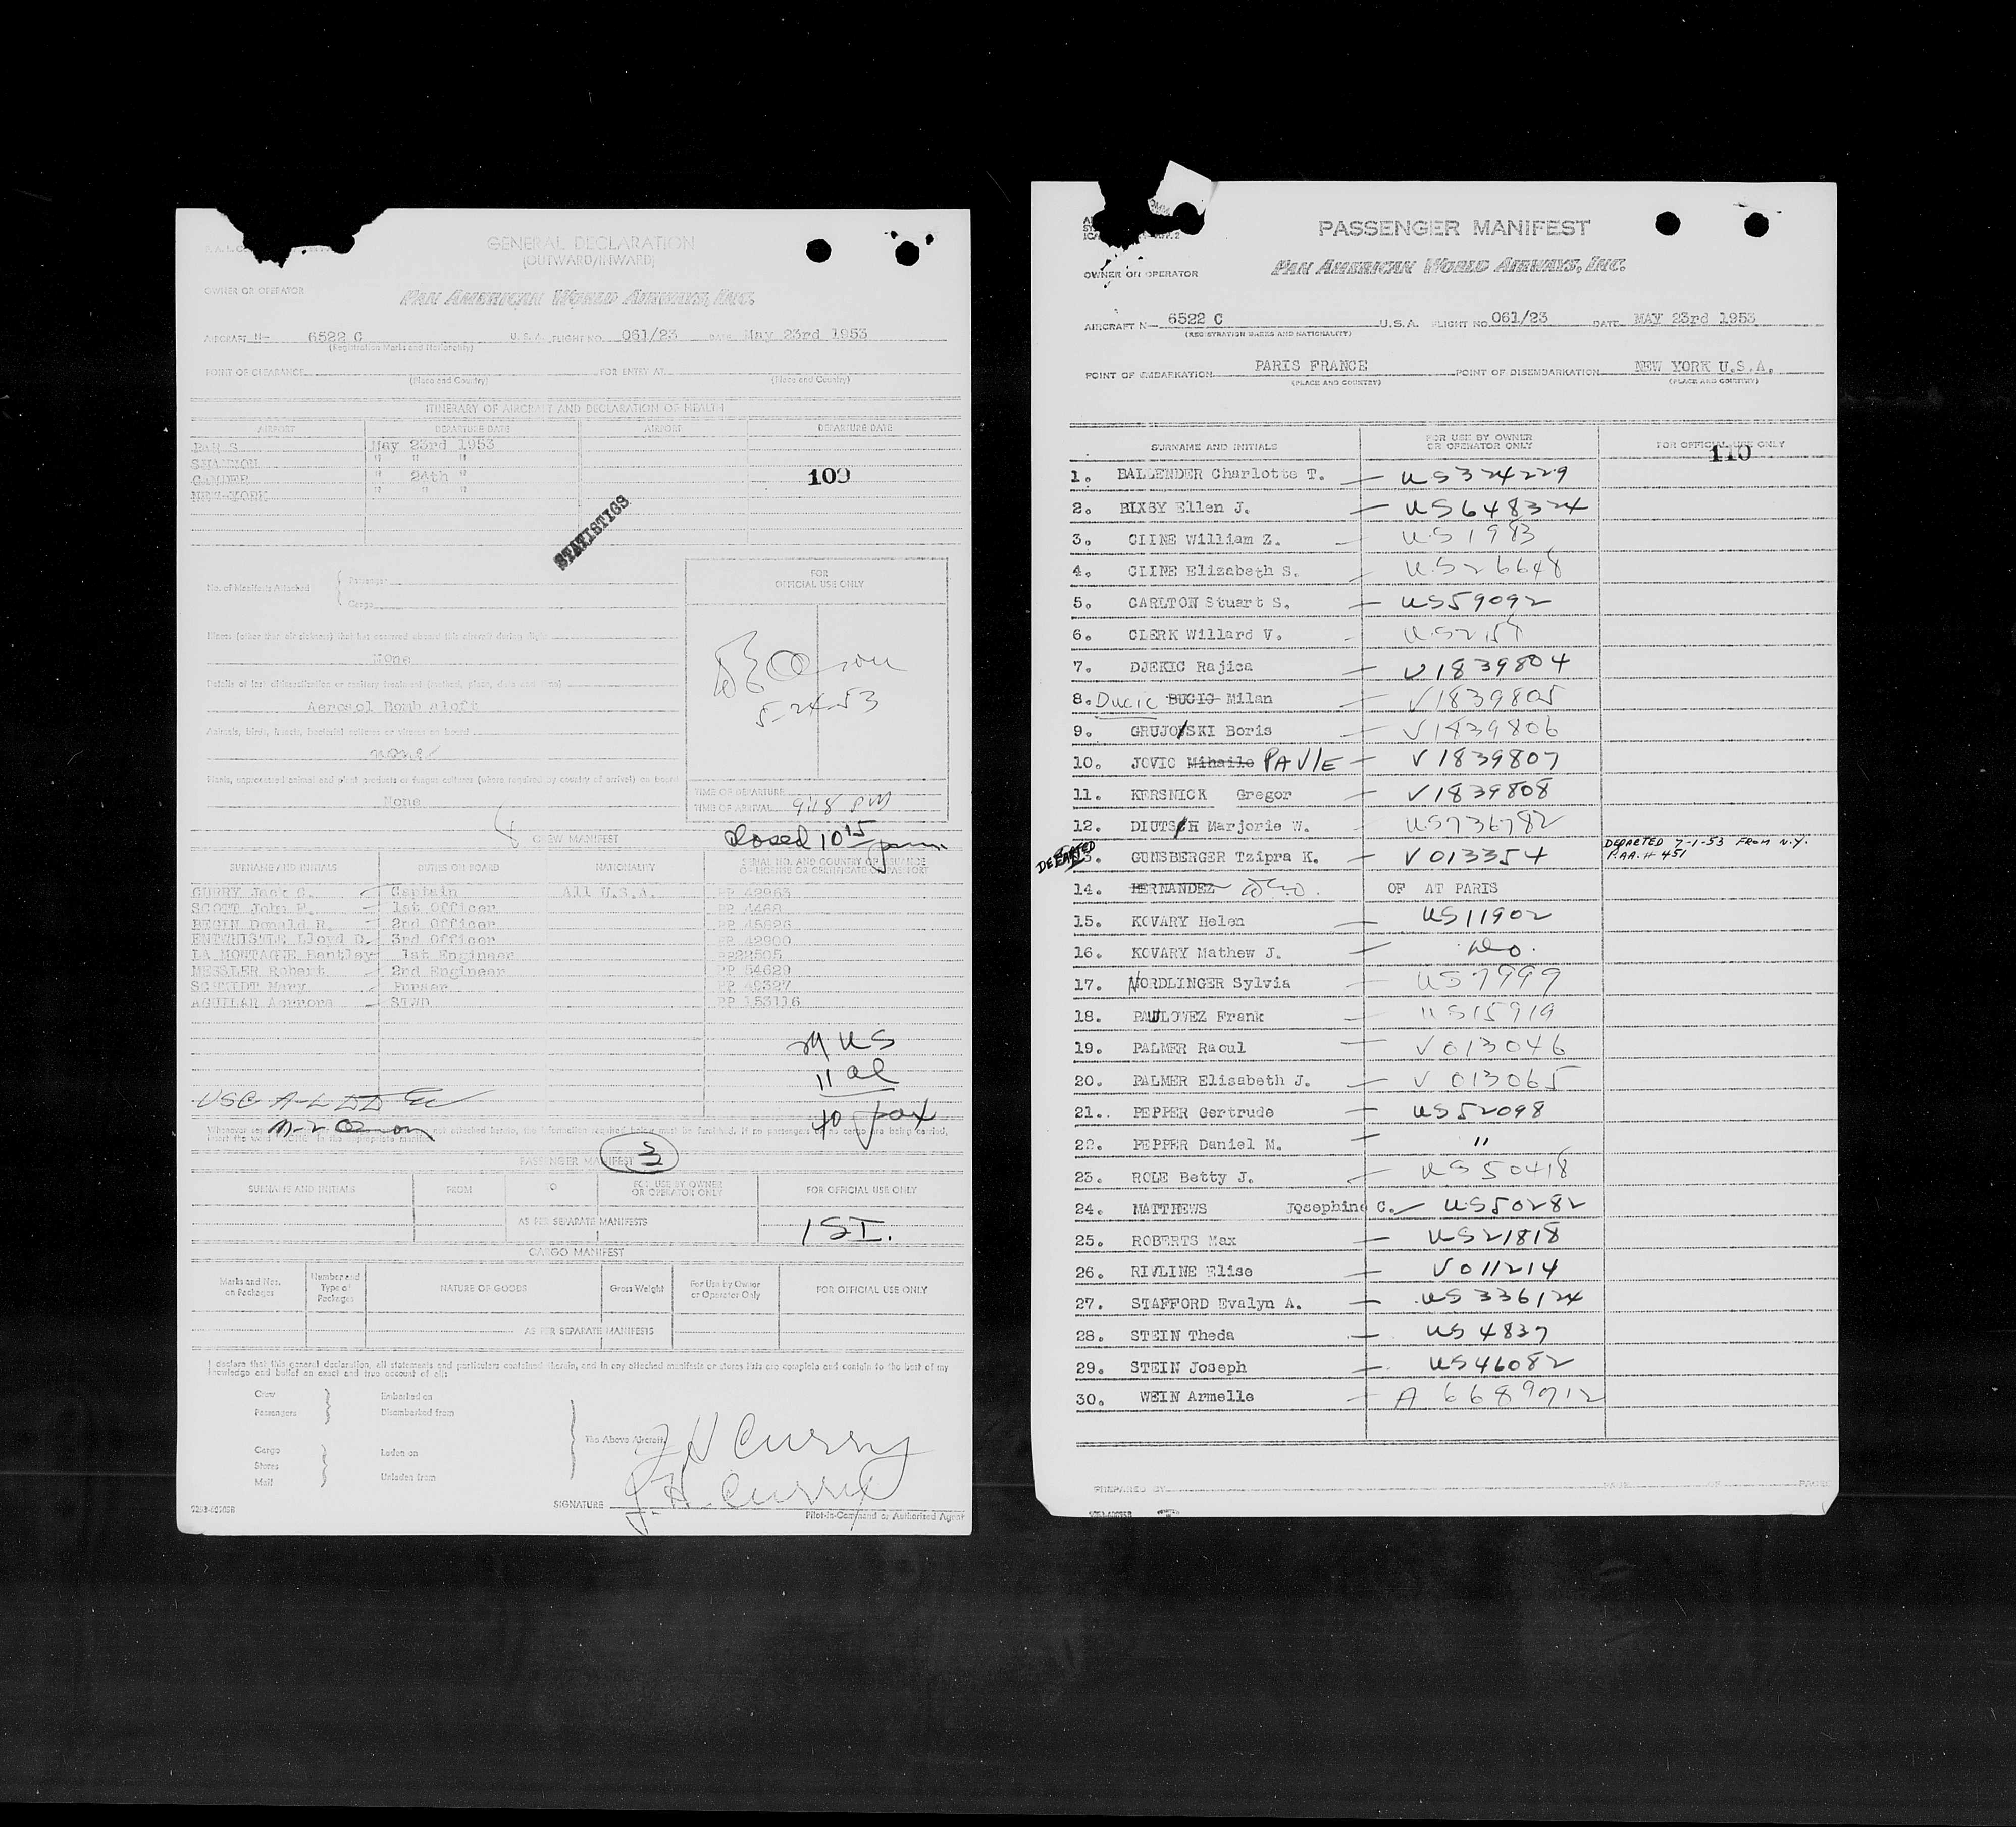 GENERAL DECLARATION
(OUTWARD/INWARD)
OWNER OR OPERATOR
PAN AMERICAN WORLD AIRWAYS, INC.
AIRCRAFT N- 6522 C U.S.A. FLIGHT NO. 061/23 DATE May 23rd 1953
(Registration Marks and Nationality)
POINT OF CLEARANCE FOR ENTRY AT
(Place and Country) (Place and Country)
ITINERARY OF AIRCRAFT AND DECLARATION OF HEALTH
AIRPORT DEPARTURE DATE AIRPORT DEPARTURE DATE
PARIS May 23rd 1953
SHANNON " " "
GANDER " 24th " 109
NEW-YORK " " "
STATISTICS
No. of Manifests Attached Passenger
Cargo
FOR
OFFICIAL USE ONLY
Illness (other than air sickness) that has occurred aboard this aircraft during flight
None
Details of last disinsectization or sanitary treatment (method, place, date and time)
Aerosol Bomb Aloft
5-24-53
Animals, birds, insects, bacterial cultures or viruses on board
none
Plants, unprocessed animal and plant products or fungus cultures (where required by country of arrival) on board
None
TIME OF DEPARTURE
TIME OF ARRIVAL 9:18 PM
8 CREW MANIFEST
Closed 10 15 pm
SURNAME AND INITIALS DUTIES ON BOARD NATIONALITY SERIAL NO. AND COUNTRY OF ISSUANCE
OF LICENSE OR CERTIFICATE OR PASSPORT
CURRY Jack C. Captain All U.S.A. PP 42963
SCOTT John 1st Officer PP 4468
BEGIN Donald R. 2nd Officer PP 45826
ENTWHISTLE Lloyd D. 3rd Officer PP 42900
LA MONTAGNE Bentley 1st Engineer PP22505
MESSLER Robert 2nd Engineer PP 54629
SCHMIDT Mary Purser PP 49327
AGUILAR STWD PP 153116
29 US
11 al
40 pax
USC
Whenever not attached hereto, the information required below must be furnished. If no passengers or no cargo are being carried,
insert the word "NONE" in the appropriate manifest
PASSENGER MANIFEST
SURNAME AND INITIALS FROM TO FOR USE BY OWNER
OR OPERATOR ONLY FOR OFFICIAL USE ONLY
AS PER SEPARATE MANIFESTS
1 SI.
CARGO MANIFEST
Marks and Nos.
on Packages Number and
Type of
Packages NATURE OF GOODS Gross Weight For Use by Owner
or Operator Only FOR OFFICIAL USE ONLY
AS PER SEPARATE MANIFESTS
I declare that this general declaration, all statements and particulars contained therein, and in any attached manifests or stores lists are complete and contain to the best of my
knowledge and belief an exact and true account of all:
Crew Embarked on
Passengers Disembarked from
The Above Aircraft.
Cargo Laden on
Stores
Mail Unladen from
J H Curry
SIGNATURE J. H. Curry
Pilot-in-Command or Authorized Agent
PASSENGER MANIFEST
OWNER OR OPERATOR
PAN AMERICAN WORLD AIRWAYS, INC.
AIRCRAFT N- 6522 C U.S.A. FLIGHT NO. 061/23 DATE MAY 23rd 1953
(REGISTRATION MARKS AND NATIONALITY)
POINT OF EMBARKATION PARIS FRANCE POINT OF DISEMBARKATION NEW YORK U.S.A.
(PLACE AND COUNTRY) (PLACE AND COUNTRY)
SURNAME AND INITIALS FOR USE BY OWNER
OR OPERATOR ONLY FOR OFFICIAL USE ONLY
110
1. BALLENDER Charlotte T. — US324229
2. BIXBY Ellen J. — US648324
3. CLINE William Z. - US1983
4. CLINE Elizabeth S. - US26648
5. CARLTON Stuart S. — US59092
6. CLERK Willard V. -
7. DJEKIC Rajica — V1839804
8. Ducic BUCIC Milan — V1839805
9. GRUJOVSKI Boris — V1839806
10. JOVIC Mihailo PAVLE — V1839807
11. KERSNICK Gregor — V1839808
12. DIUTSCH Marjorie W. — US736782
DEPARTED 13. GUNSBERGER Tzipra K. — V013354 DEPARTED 7-1-53 FROM N.Y.
P.AA.# 451
14. HERNANDEZ OF AT PARIS
15. KOVARY Helen — US11902
16. KOVARY Mathew J. — do.
17. NORDLINGER Sylvia — US7999
18. PAULOVEZ Frank — US15919
19. PALMER Raoul — V013046
20. PALMER Elisabeth J. — V013065
21. PEPPER Gertrude — US52098
22. PEPPER Daniel M. — "
23. ROLE Betty J. — US50418
24. MATTHEWS Josephine C. — US50282
25. ROBERTS Max — US21818
26. RIVLINE Elise — V011214
27. STAFFORD Evalyn A. — US336124
28. STEIN Theda — US4837
29. STEIN Joseph — US46082
30. WEIN Armelle — A 6689712
PREPARED BY PAGE OF PAGES